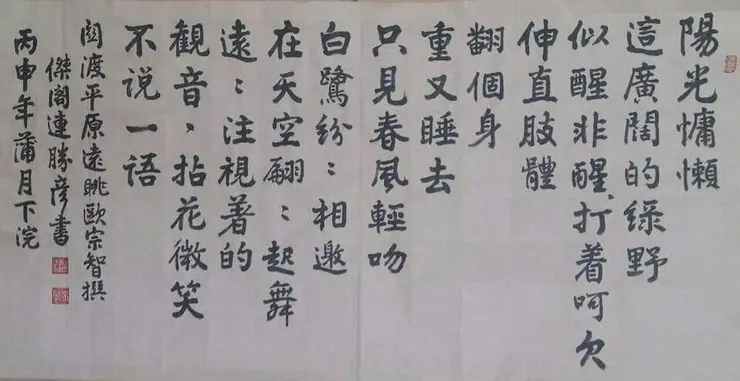 陽光慵懶
這廣闊的綠野
似醒非醒,打着呵欠
伸直肢體
翻個身
重又睡去
只見春風輕吻
白鷺紛:相邀
在天空翩:起舞
遠:注視著的
觀音,拈花微笑
不说一语
関渡平原遠眺歐宗智撰
傑閣連勝彥書
丙申年蒲月下浣